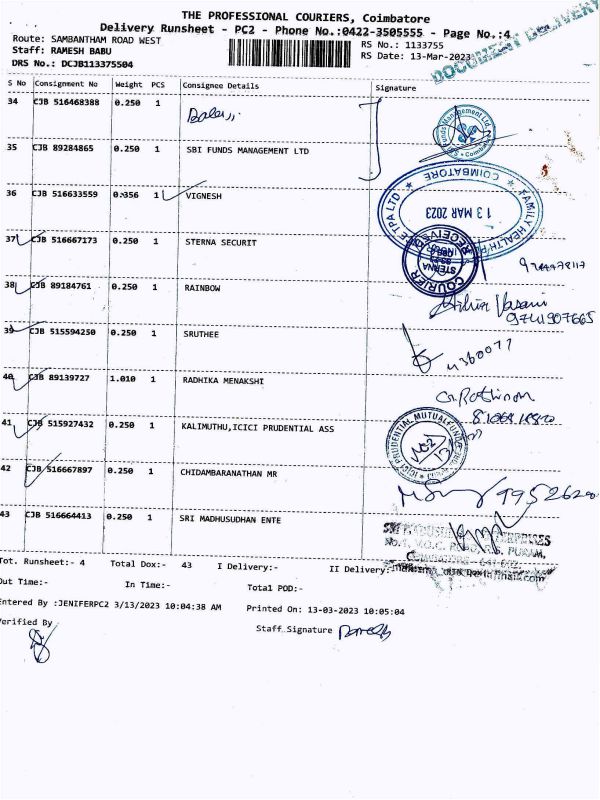 THE PROFESSIONAL COURIERS, Coimbatore
Delivery Runsheet - PC2 - Phone No.:0422-3505555 - Page No.:4
Route: SAMBANTHAM ROAD WEST
RS No.: 1133755
Staff: RAMESH BABU
RS Date: 13-Mar-2023
DRS No.: DCJB113375504
DOCUMENT DELIVERY
S No Consignment No Weight PCS Consignee Details Signature
34 CJB 516468388 0.250 1
35 CJB 89284865 0.250 1 SBI FUNDS MANAGEMENT LTD
36 CJB 516633559 0.356 1 VIGNESH
COIMBATORE
13 MAR 2023
37 CJB 516667173 0.250 1 STERNA SECURIT
STERNA
COURIER
38 CJB 89184761 0.250 1 RAINBOW
9741907665
39 CJB 515594250 0.250 1 SRUTHEE
40 CJB 89139727 1.010 1 RADHIKA MENAKSHI
41 CJB 515927432 0.250 1 KALIMUTHU,ICICI PRUDENTIAL ASS
42 CJB 516667897 0.250 1 CHIDAMBARANATHAN MR
43 CJB 516664413 0.250 1 SRI MADHUSUDHAN ENTE
Tot. Runsheet:- 4 Total Dox:- 43 I Delivery:- II Delivery:-
Out Time:- In Time:- Total POD:-
Entered By :JENIFERPC2 3/13/2023 10:04:38 AM Printed On: 13-03-2023 10:05:04
Verified By
Staff Signature Ramesh